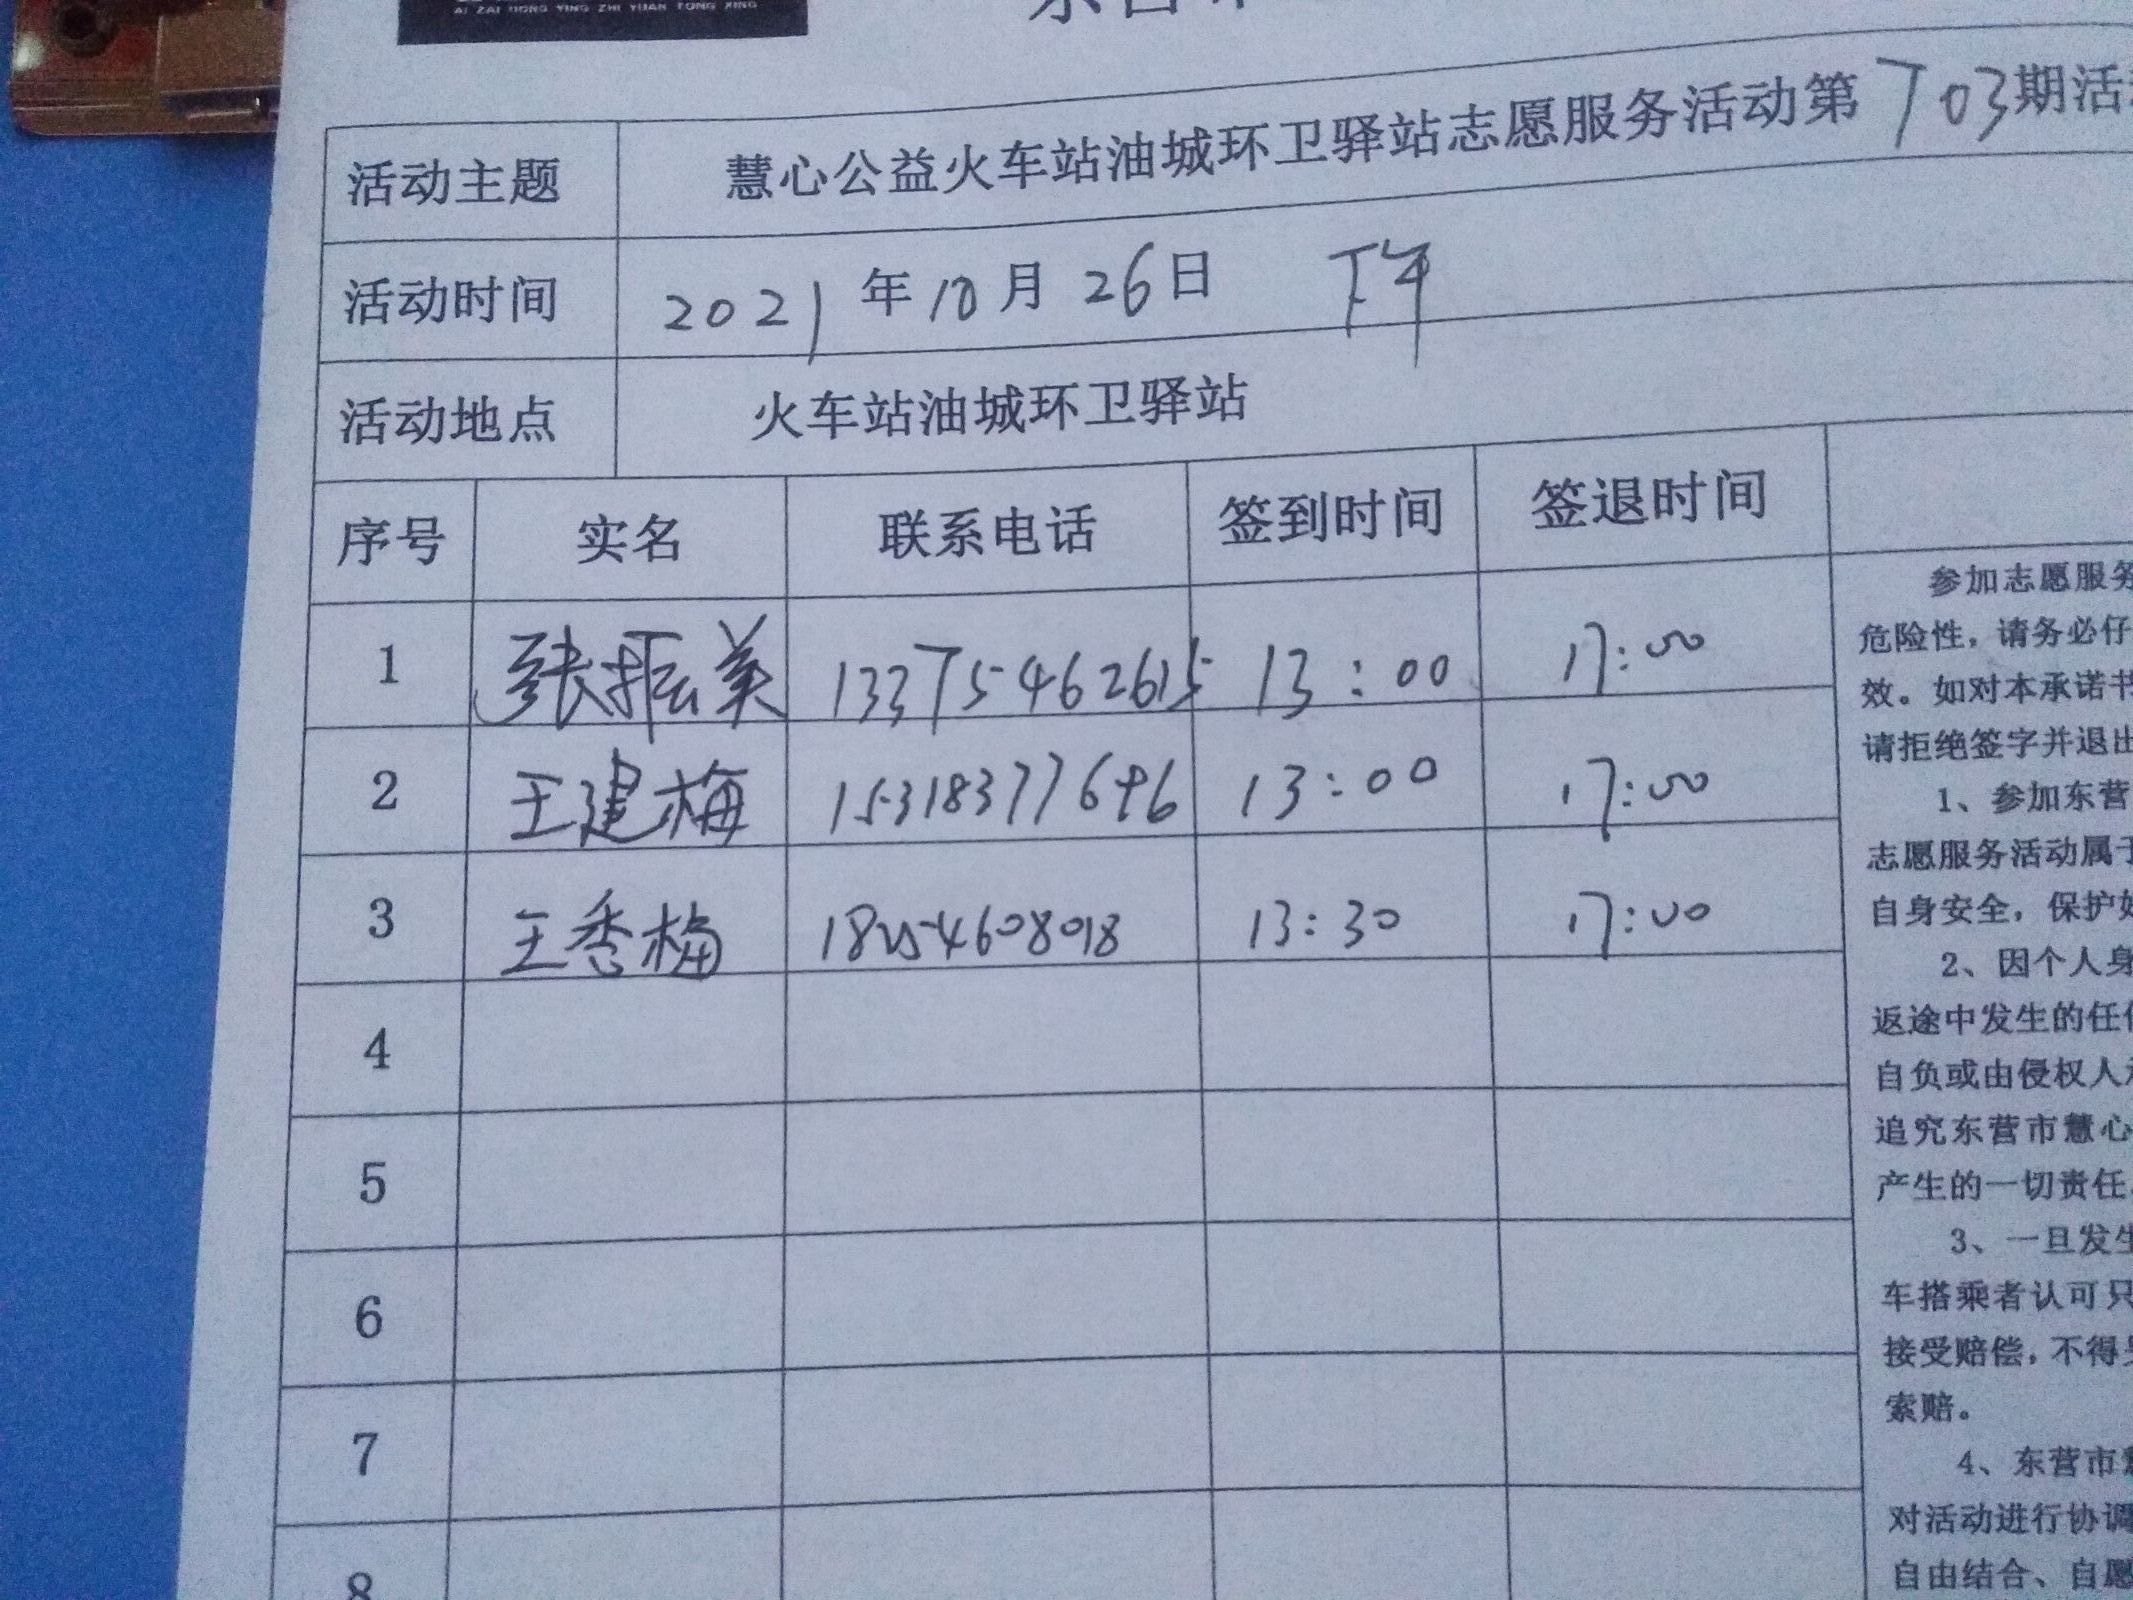 AI ZAI DONG YING ZHI YUAN TONG XING
活动主题 慧心公益火车站油城环卫驿站志愿服务活动第703期活
活动时间 2021年10月26日 下午
活动地点 火车站油城环卫驿站
序号 实名 联系电话 签到时间 签退时间
1 张振美 13375462615 13:00 17:00
2 王建梅 15318377696 13:00 17:00
3 王香梅 18254608018 13:30 17:00
4
5
6
7
8
参加志愿服务
危险性，请务必仔
效。如对本承诺书
请拒绝签字并退出
1、参加东营
志愿服务活动属于
自身安全，保护好
2、因个人身
返途中发生的任何
自负或由侵权人承
追究东营市慧心
产生的一切责任
3、一旦发生
车搭乘者认可只
接受赔偿，不得另
索赔。
4、东营市慧
对活动进行协调
自由结合、自愿